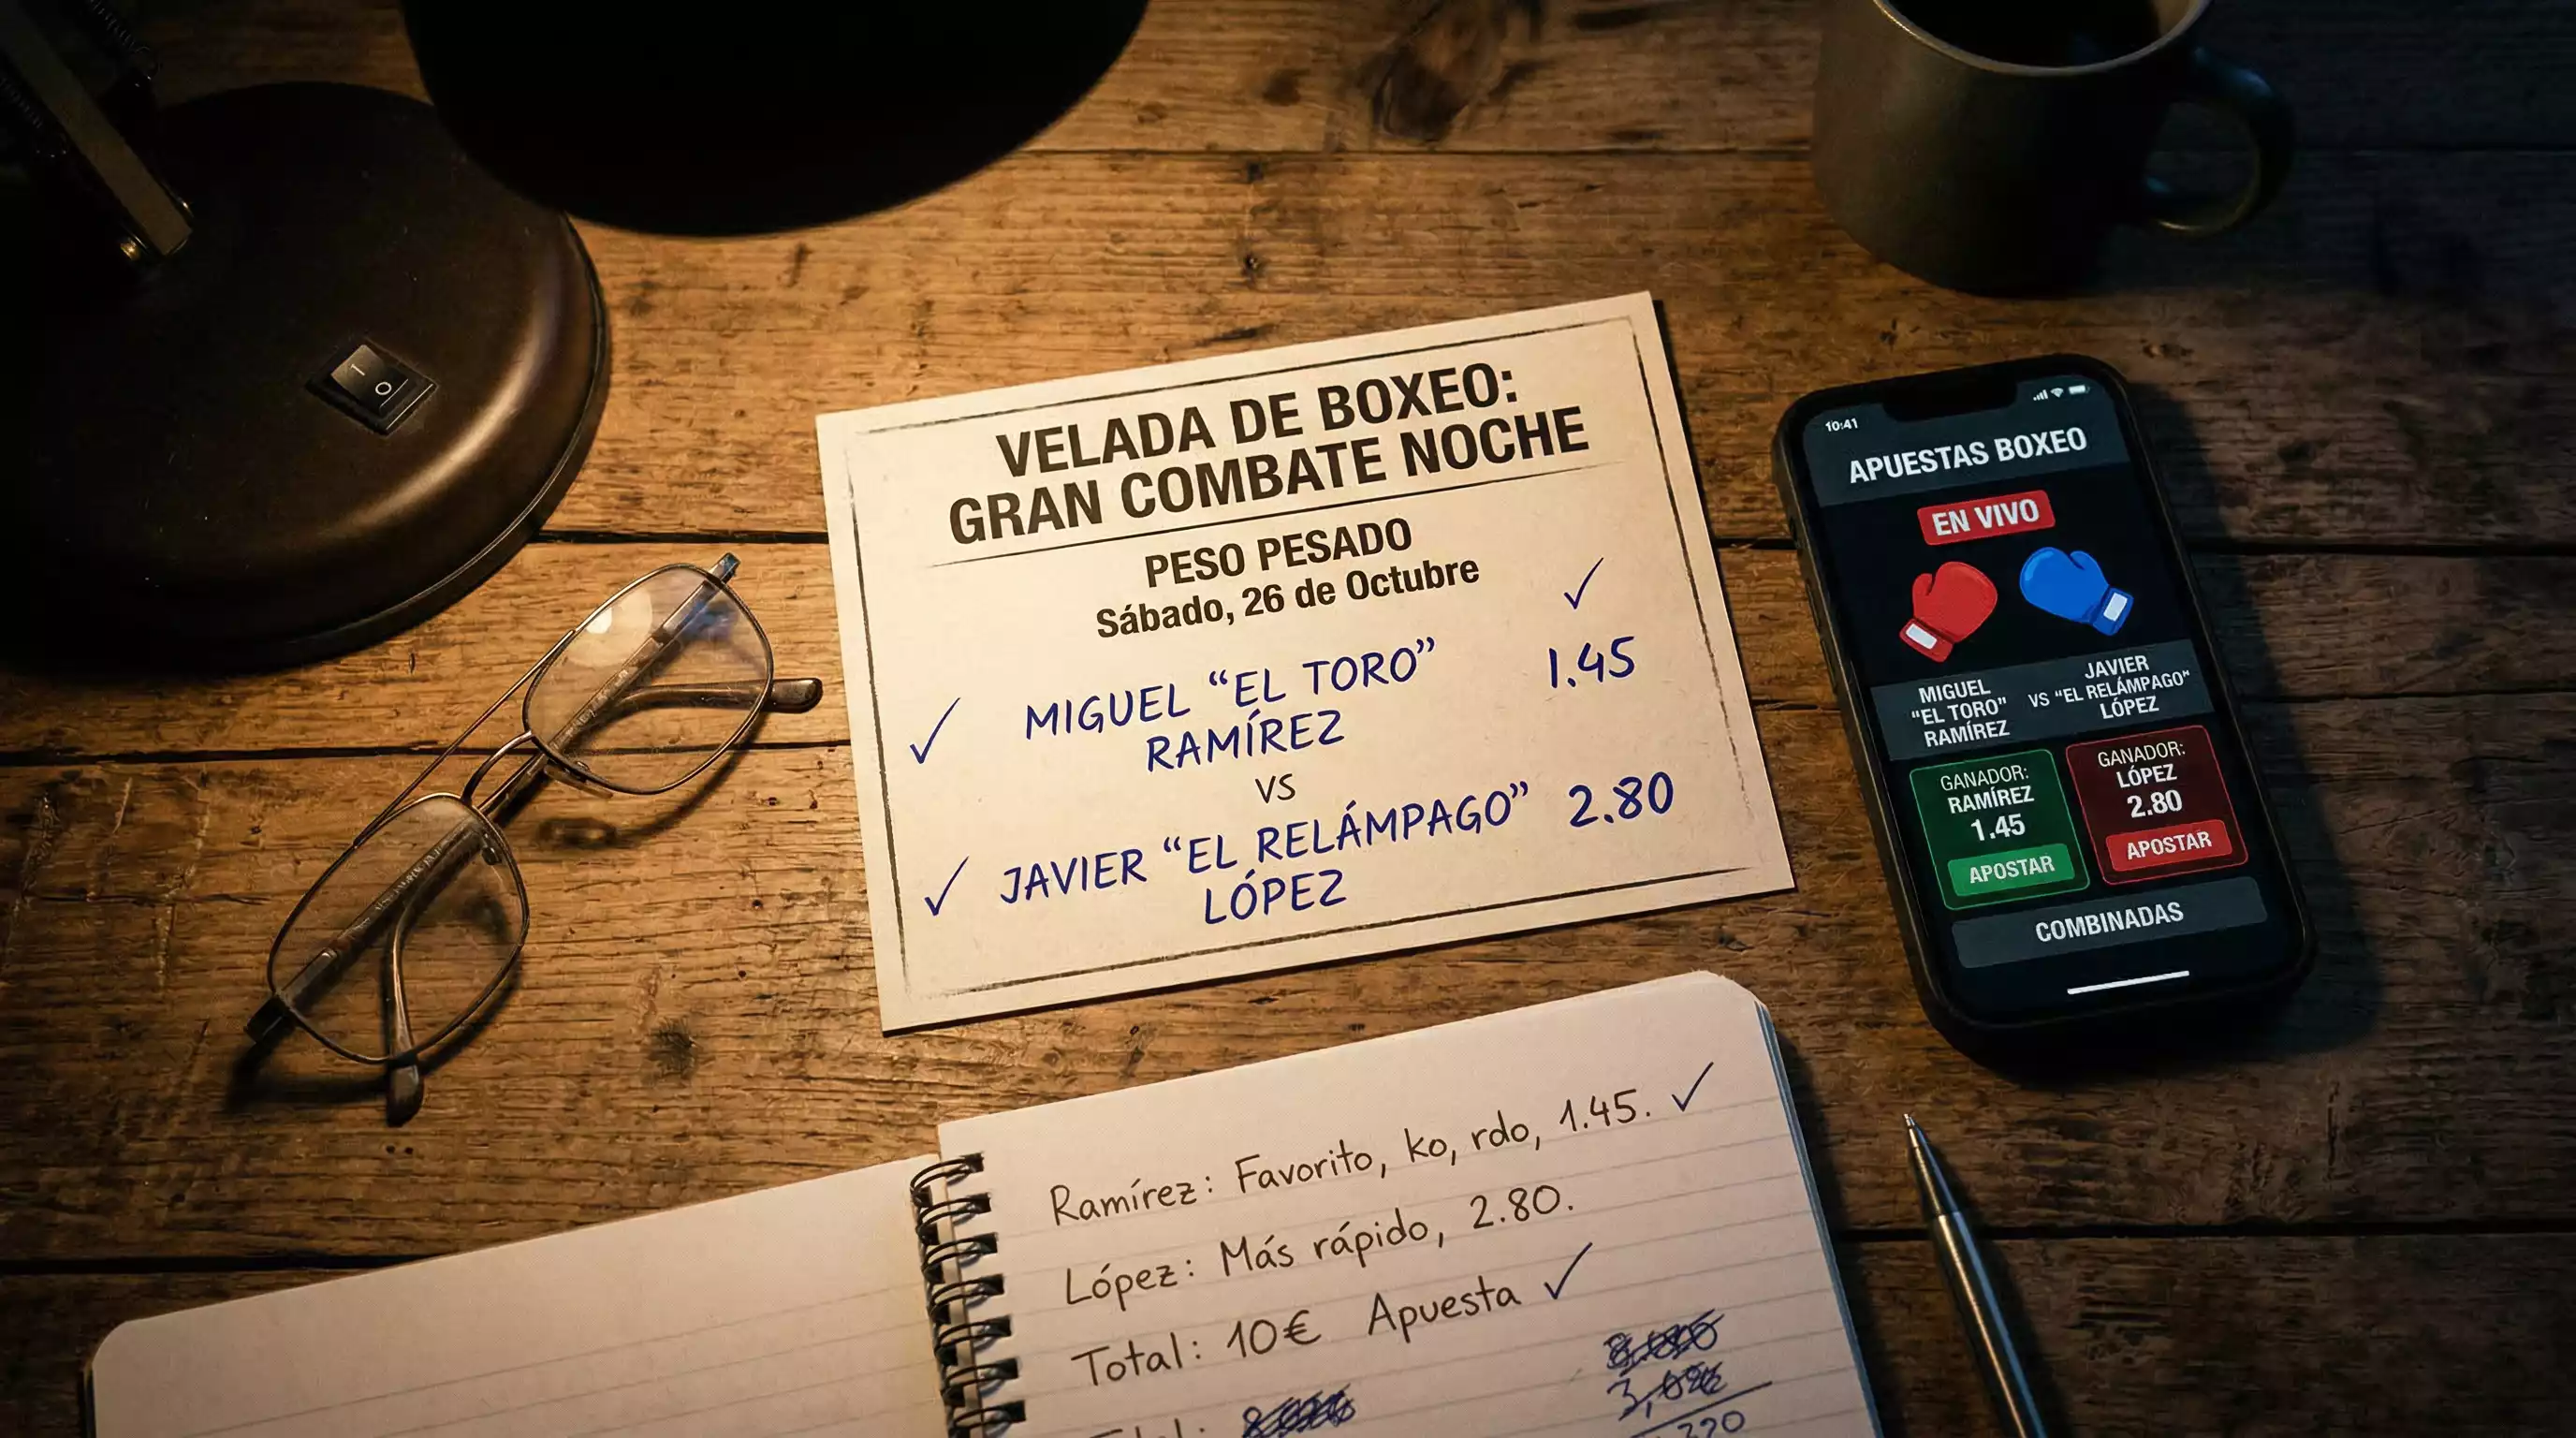 VELADA DE BOXEO:
GRAN COMBATE NOCHE
PESO PESADO
Sábado, 26 de Octubre
MIGUEL “EL TORO” 1.45
RAMÍREZ
VS
JAVIER “EL RELÁMPAGO” 2.80
LÓPEZ
10:41
APUESTAS BOXEO
EN VIVO
MIGUEL
"EL TORO"
RAMÍREZ
VS
JAVIER
"EL RELÁMPAGO"
LÓPEZ
GANADOR:
RAMÍREZ
1.45
APOSTAR
GANADOR:
LÓPEZ
2.80
APOSTAR
COMBINADAS
Ramírez: Favorito, ko, rdo, 1.45.
López: Más rápido, 2.80.
Total: 10€ Apuesta